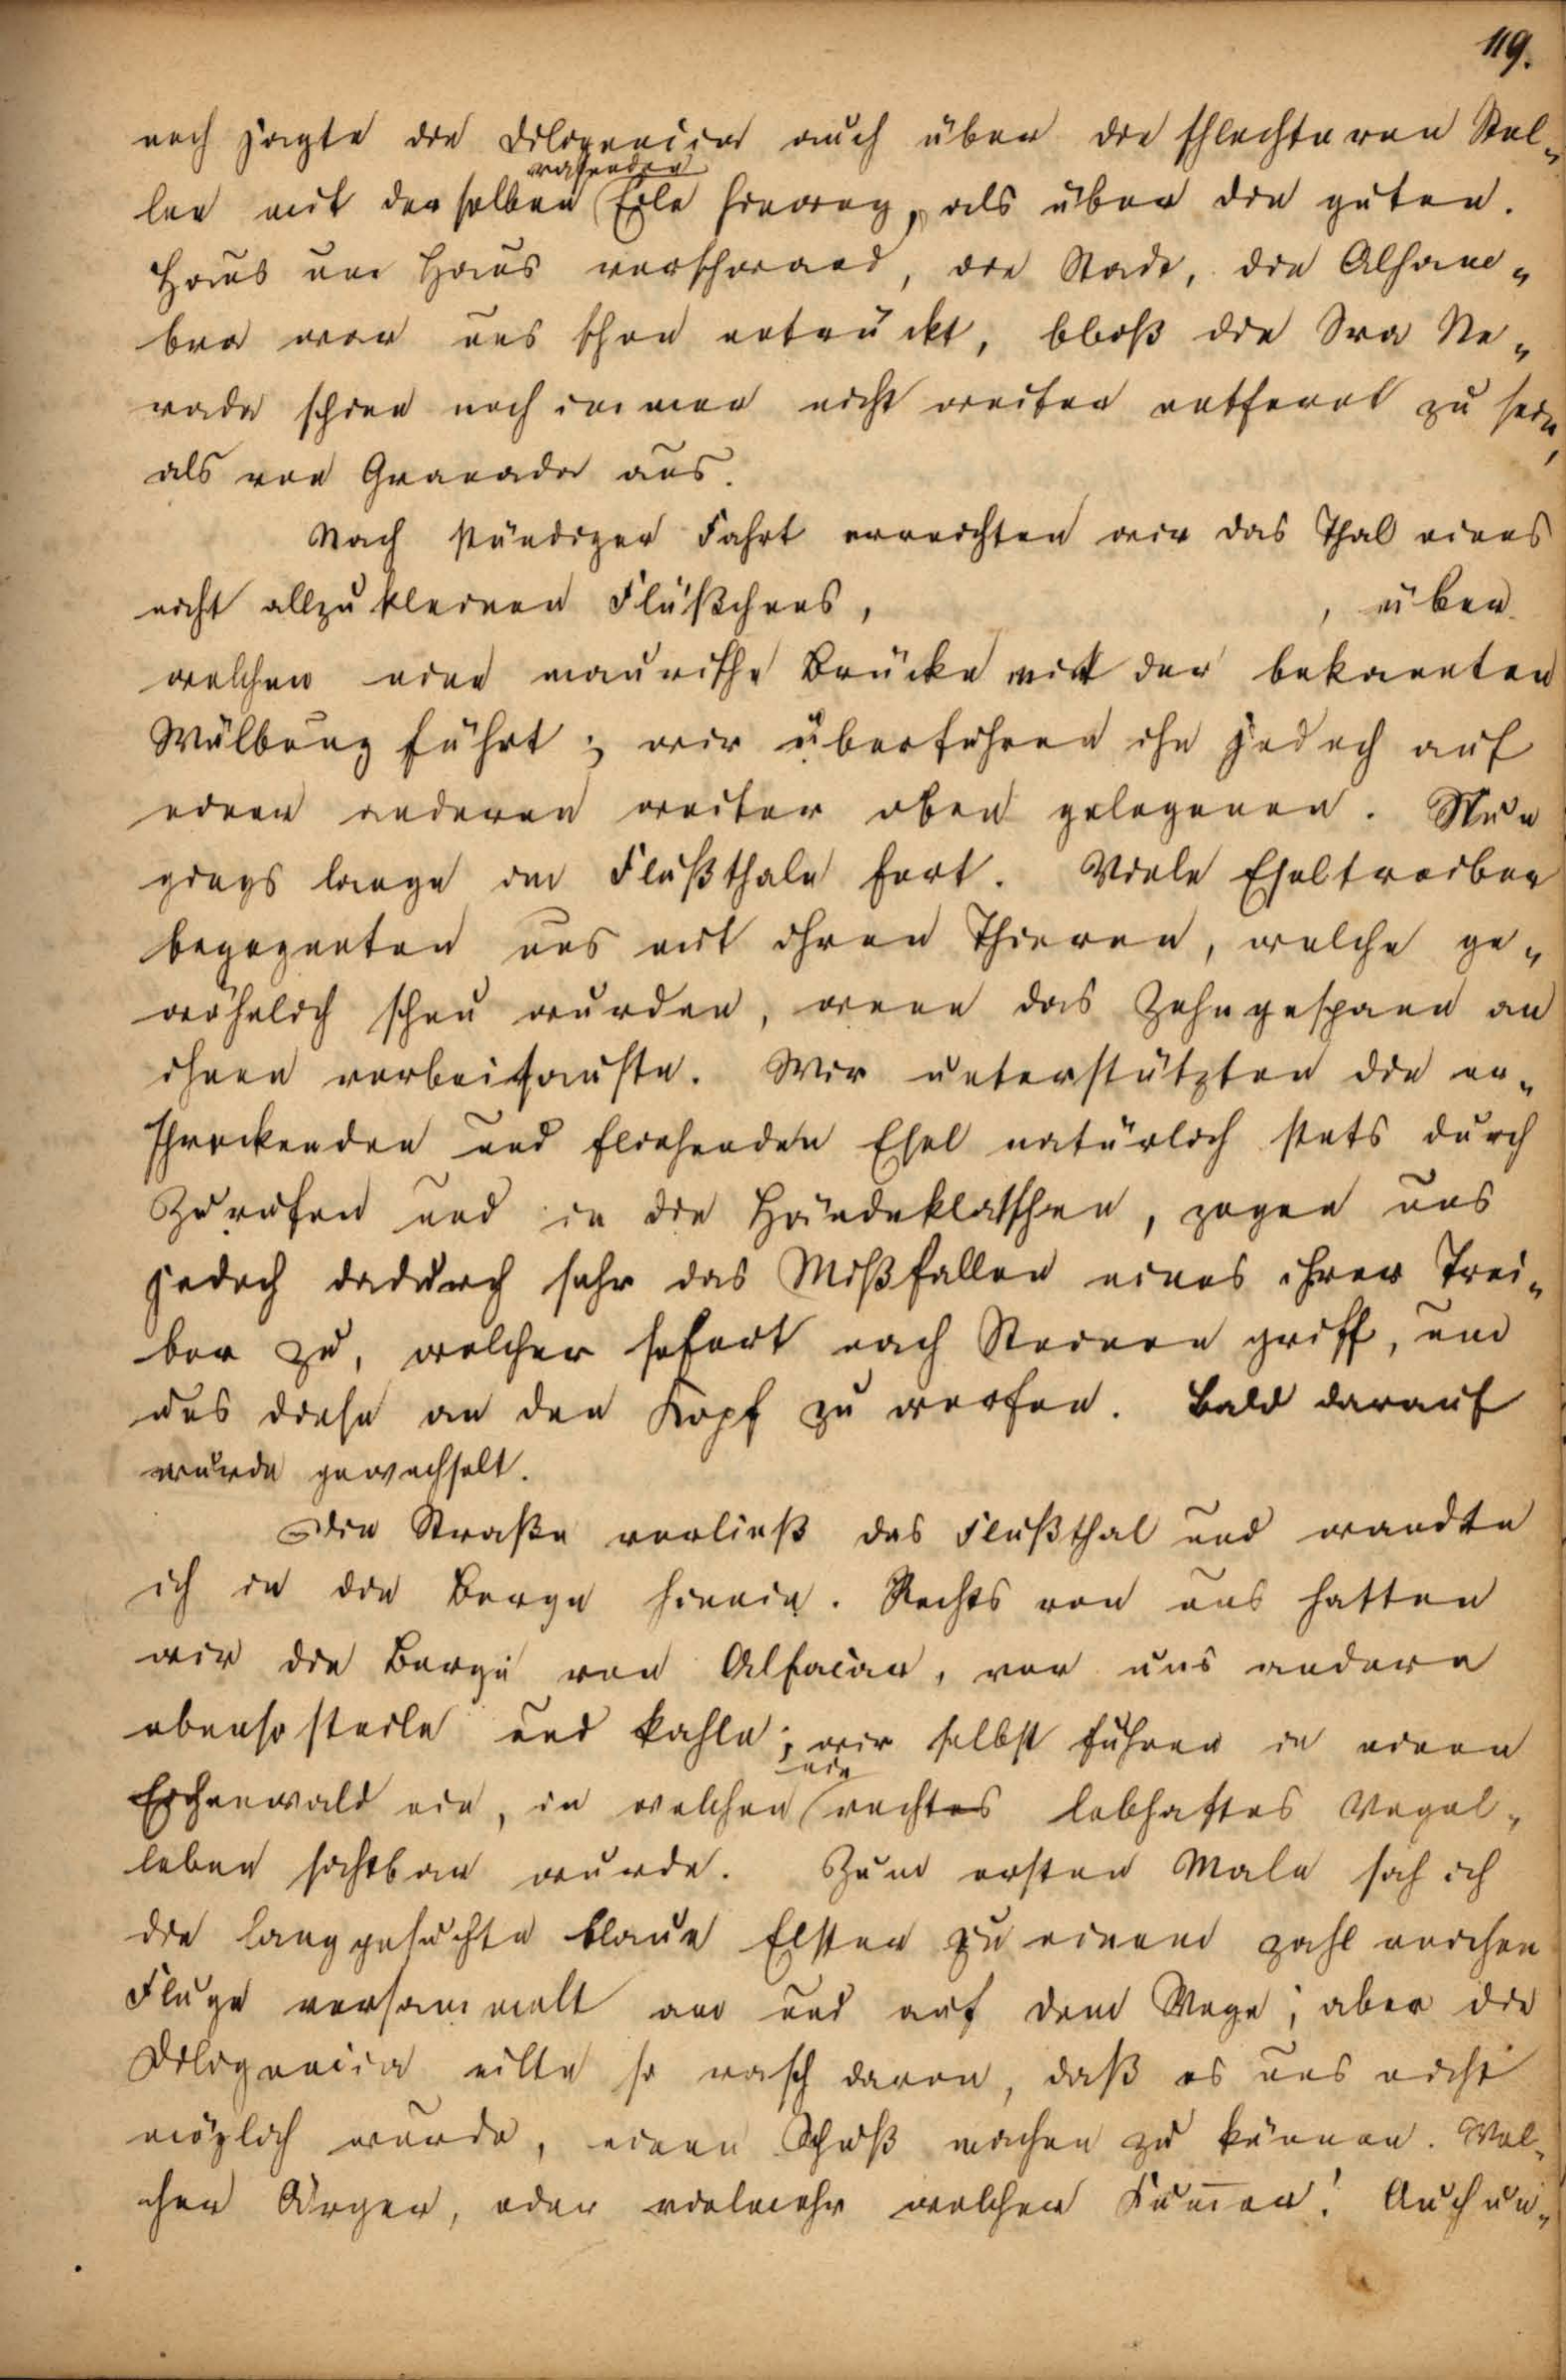 119.
noch jagte die Diligencia auch über die schlechteren Stel-
rasenden
len mit derselben Eile hinweg, als über die guten.
Haus um Haus verschwand, die Stadt, die Alham-
bra war uns schon entrückt, bloß die Sra Ne-
vada schien noch immer nicht weiter entfernt zu sein,
als von Granada aus.
Nach stündiger Fahrt erreichten wir das Thal eines
nicht allzukleinen Flüßchens, , über
welchen eine maurische Brücke mit der bekannten
Wölbung führt; wir überfuhren ihn jedoch auf
einer anderen weiter oben gelegenen. Nun
gings lange im Flußthale fort. Viele Eseltreiber
begegneten uns mit ihren Thieren, welche ge-
wöhnlich scheu wurden, wenn das Zehngespann an
ihnen vorbeisauste. Wir unterstützten die er-
schreckenden und fliehenden Esel natürlich stets durch
Zurufen und in die Händeklatschen, zogen uns
jedoch dadurch sehr das Mißfallen eines ihrer Trei-
ber zu, welcher sofort nach Steinen griff, um
uns diese an den Kopf zu werfen. Bald darauf
wurde gewechselt.
Die Straße verließ das Flußthal und wandte
ich in die Berge hinein. Rechts von uns hatten
wir die Berge von Alfacar, vor uns andere
ebenso steile und kahle; wir selbst fuhren in einen
ein
Eichenwald ein, in welchen rechtes lebhaftes Vogel-
leben sichtbar wurde. Zum ersten Male sah ich
die langgesuchte blaue Elster zu einem zahlreichen
Fluge versammelt am und auf dem Wege; aber die
Diligencia eilte so rasch davon, daß es uns nicht
möglich wurde, einen Schuß machen zu können. Wel-
cher Ärger, oder vielmehr welcher Kum̅er! Auch un-